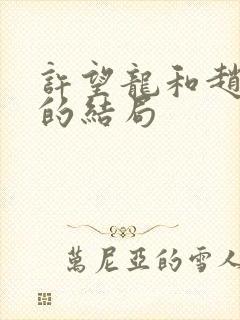 許望龍和趙
的結局
萬尼亞的雪人